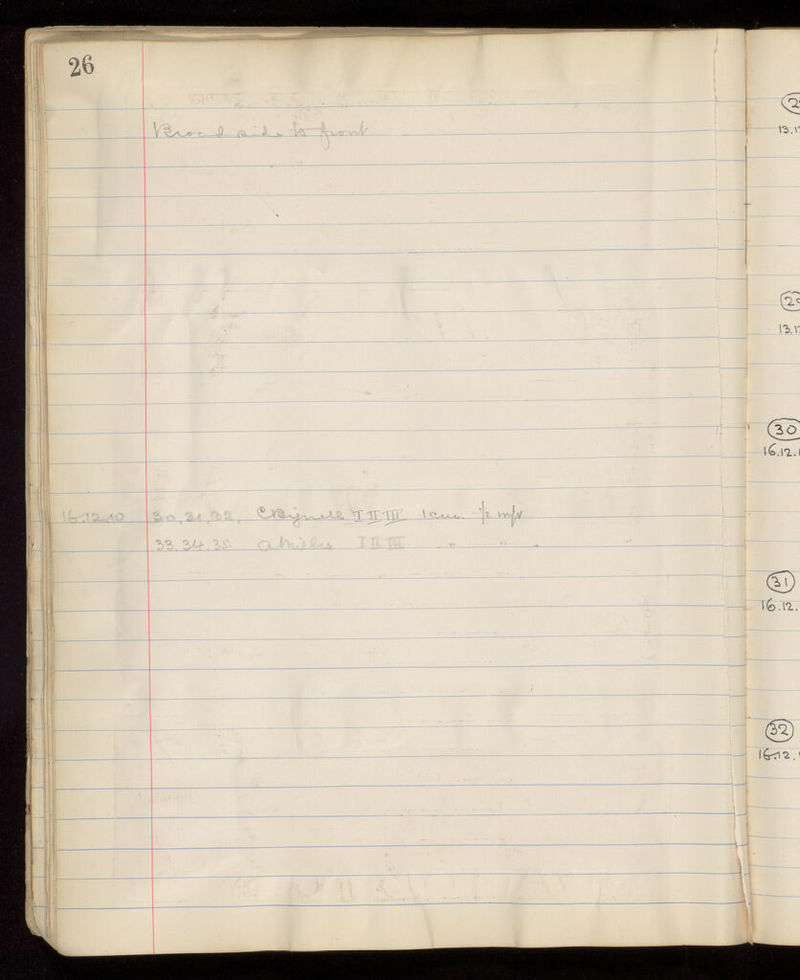 26
Broad side to front
16.12.10 30, 31, 32, I II III 1 cm. 1/2 mfv
33. 34. 35. I II III " " "
13.1
13.1
30
16.12.1
31
16.12.
32
16.12.